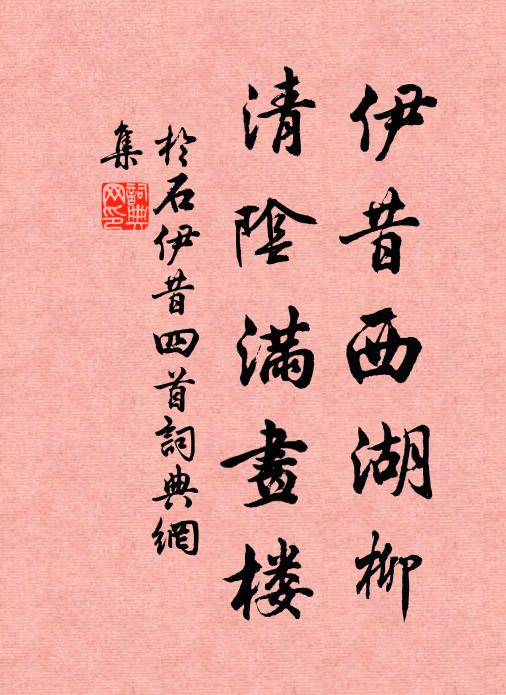 伊昔西湖柳
清陰滿畫楼
於石伊昔四首詞典網
集
詞典
网印